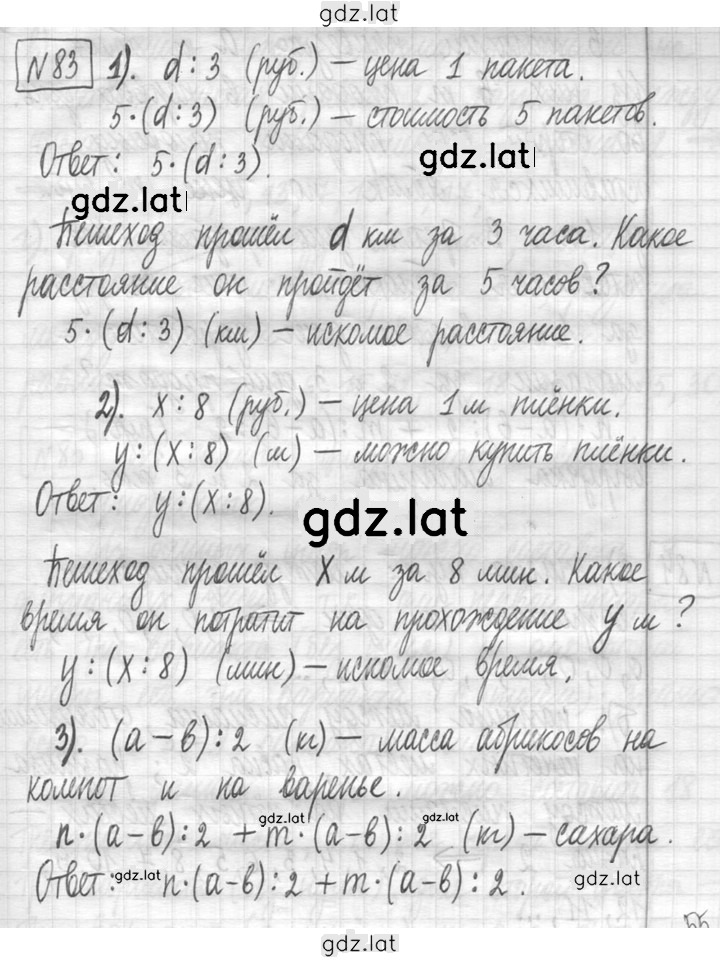 gdz.lat
№83 1). d:3 (руб.) – цена 1 пакета.
5·(d:3) (руб.) – стоимость 5 пакетов.
Ответ: 5·(d:3).
gdz.lat
gdz.lat
Пешеход прошёл d км за 3 часа. Какое
расстояние он пройдёт за 5 часов?
5·(d:3) (км) – искомое расстояние.
2). x:8 (руб.) – цена 1 м плёнки.
y:(x:8) (м) – можно купить плёнки.
Ответ: y:(x:8).
gdz.lat
Пешеход прошёл x м за 8 мин. Какое
время он потратит на прохождение y м?
y:(x:8) (мин) – искомое время.
3). (a–b):2 (кг) – масса абрикосов на
компот и на варенье.
gdz.lat gdz.lat
n·(a–b):2 + m·(a–b):2 (кг) – сахара.
Ответ: gdz.lat n·(a–b):2 + m·(a–b):2. gdz.lat
55
gdz.lat